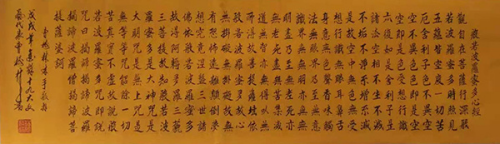 般若波羅蜜多心經
觀自在菩薩行深般
若波羅蜜多時照見
五蘊皆空度一切苦
厄舍利子色不異空
空不異色色即是空
空即是色受想行識
亦復如是舍利子是
諸法空相不生不滅
不垢不淨不增不減
是故空中無色無受
想行識無眼耳鼻舌
身意無色聲香味觸
法無眼界乃至無意
識界無無明亦無無
明盡乃至無老死亦
無老死盡無苦集滅
道無智亦無得以無
所得故菩提薩埵依
般若波羅蜜多故心
無罣礙無罣礙故無
有恐怖遠離顛倒夢
想究竟涅槃三世諸
佛依般若波羅蜜多
故得阿耨多羅三藐
三菩提故知般若波
羅蜜多是大神咒是
大明咒是無上咒是
無等等咒能除一切
苦真實不虛故說般
若波羅蜜多咒即說
咒曰揭諦揭諦波羅
揭諦波羅僧揭諦菩
提薩婆訶